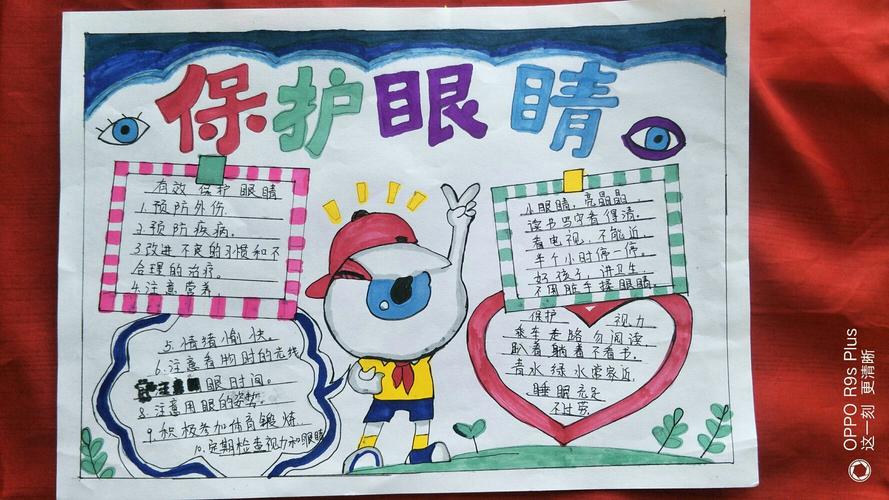 保护眼睛
有效保护眼睛
1.预防外伤.
2.预防疾病.
3.改进不良的习惯和不
合理的治疗.
4.注意营养
5.情绪愉快.
6.注意看物时的光线
注意 眼时间。
8.注意用眼的姿势.
9.积极参加体育锻炼.
10.定期检查视力和眼睛
小眼睛,亮晶晶.
读书写字看得清.
看电视,不能近.
半个小时停一停.
好孩子,讲卫生.
不用脏手揉眼睛.
保护 视力
乘车走路勿阅读,
趴着躺着不看书.
青山绿水常家近.
睡眠充足
不过劳
OPPO R9s Plus
这一刻 更清晰